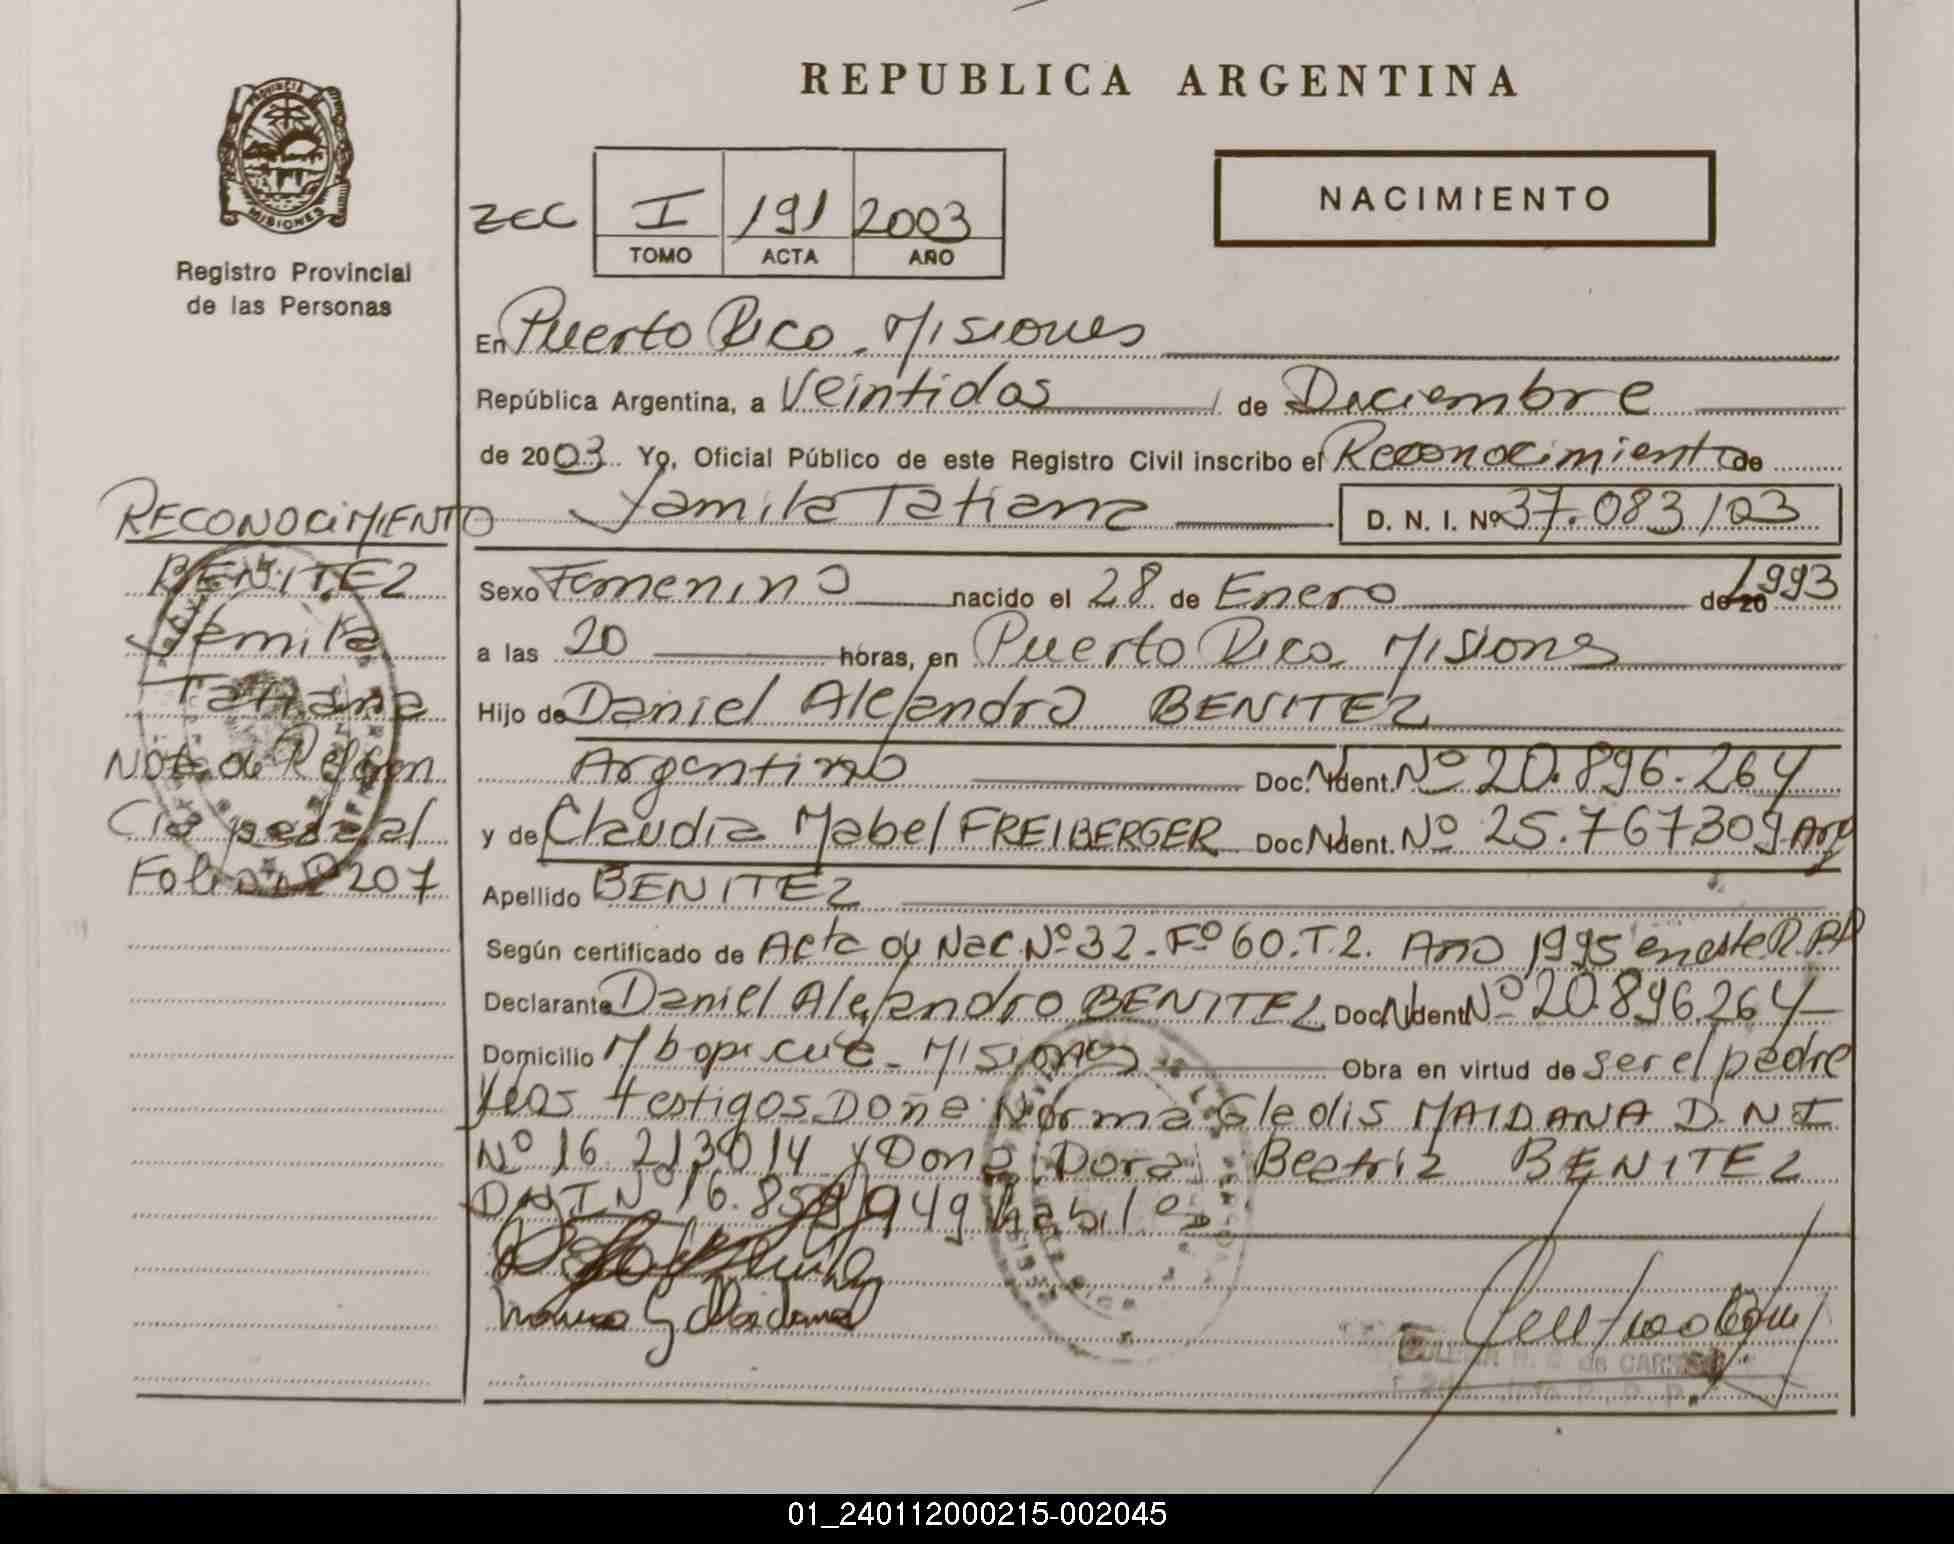 REPUBLICA ARGENTINA
PROVINCIA DE
MISIONES
Registro Provincial
de las Personas
NACIMIENTO
I 191 2003
TOMO ACTA AÑO
En Puerto Rico - Misiones
República Argentina, a Veintidos de Diciembre
de 2003. Yo, Oficial Público de este Registro Civil inscribo el Reconocimiento de
Yamila Tatiana D. N. I. Nº 37.083.103
Sexo Femenino nacido el 28 de Enero de 20 1993
a las 20 horas, en Puerto Rico Misiones
Hijo de Daniel Alejandro BENITEZ
Argentino Doc. Ident. Nº 20.896.264
y de Claudia Mabel FREIBERGER Doc. Ident. Nº 25.767309 Arg
Apellido BENITEZ
Según certificado de Acta de Nac. Nº 32 - Fº 60. T. 2. Año 1995 en este R.P.P
Declarante Daniel Alejandro BENITEZ Doc. Ident. Nº 20.896.264
Domicilio Mbopicuá - Misiones Obra en virtud de ser el padre
y los testigos Doña Norma Gledis MAIDANA D.N.I.
Nº 16.213014 y Doña Dora Beatriz BENITEZ
DNI Nº 16.859949 habiles
RECONOCIMIENTO
BENITEZ
Yamila
Tatiana
Nota de Referen
cia
Folio Nº 207
de CARR
01_240112000215-002045